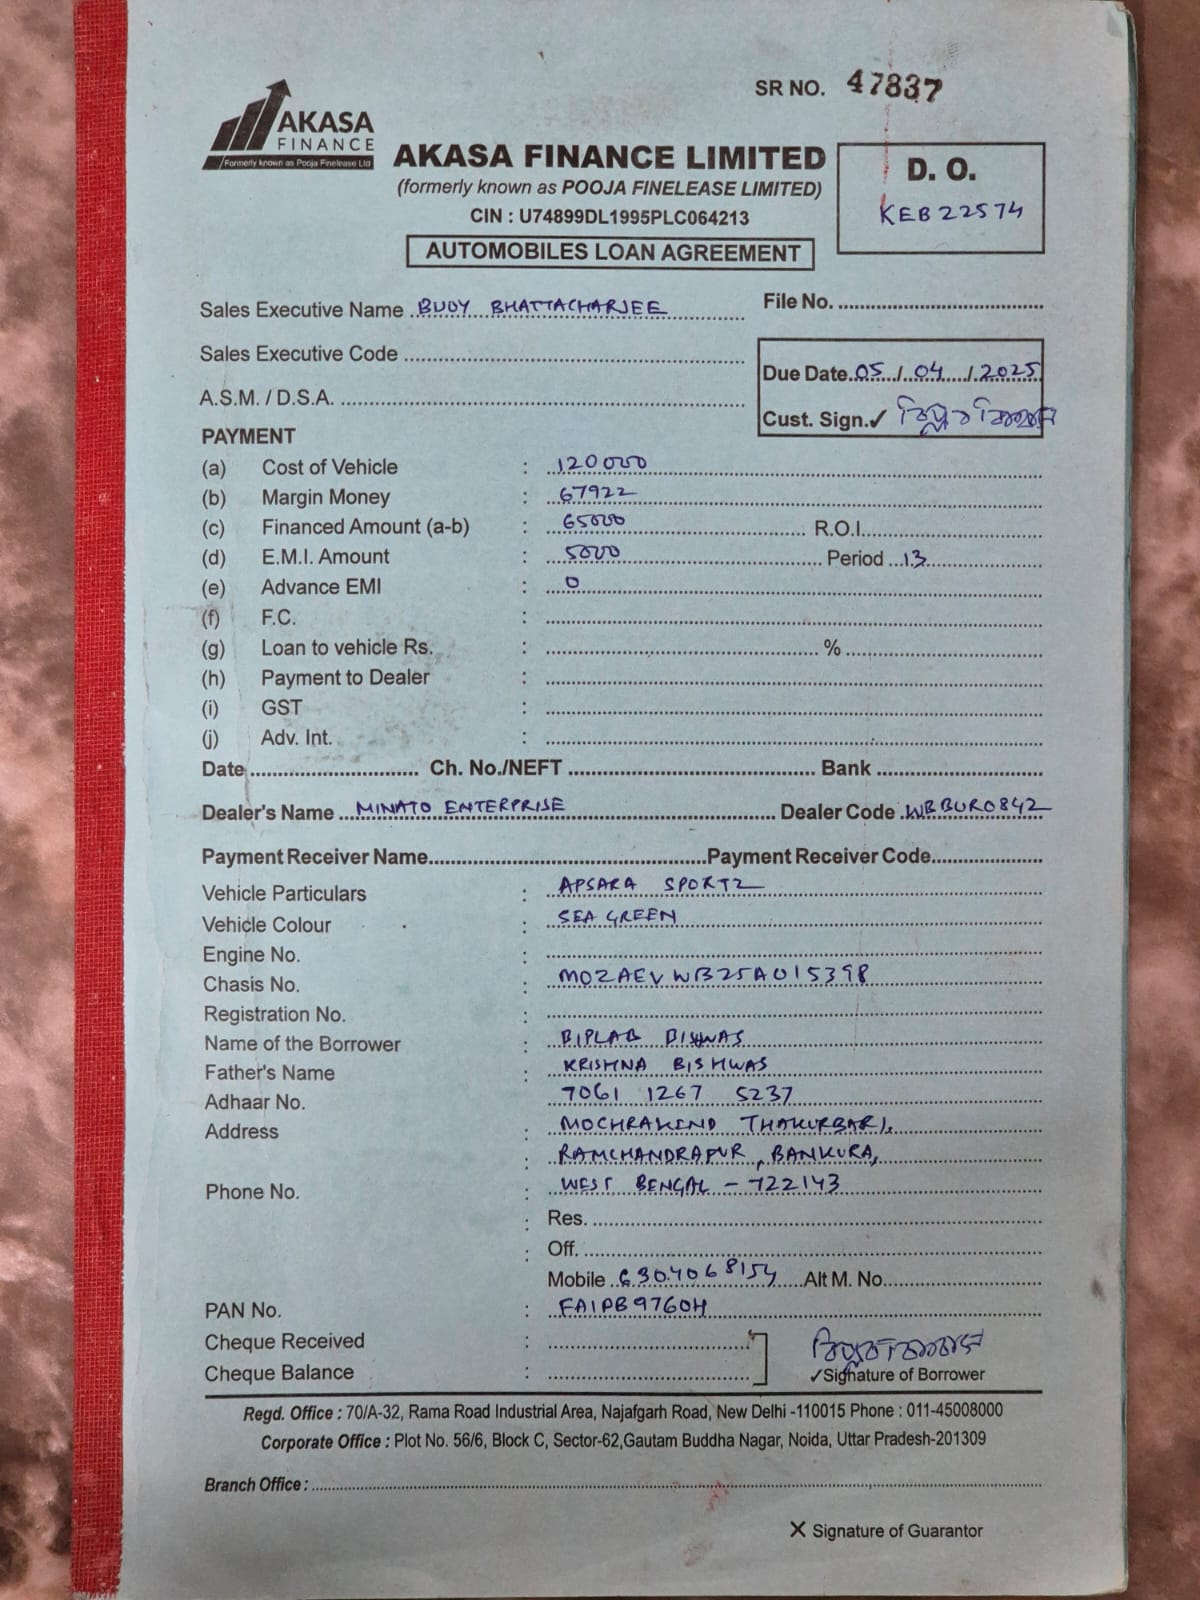 SR NO. 47837
AKASA
FINANCE
Formerly known as Pooja Finelease Ltd
AKASA FINANCE LIMITED
(formerly known as POOJA FINELEASE LIMITED)
CIN : U74899DL1995PLC064213
AUTOMOBILES LOAN AGREEMENT
D. O.
KEB22574
Sales Executive Name BIJOY BHATTACHARJEE
File No.
Sales Executive Code
Due Date 05/04/2025
A.S.M. / D.S.A.
Cust. Sign.✓
PAYMENT
(a) Cost of Vehicle : 120000
(b) Margin Money : 67922
(c) Financed Amount (a-b) : 65000 R.O.I.
(d) E.M.I. Amount : 5000 Period 13
(e) Advance EMI : 0
(f) F.C. :
(g) Loan to vehicle Rs. : %
(h) Payment to Dealer :
(i) GST :
(j) Adv. Int. :
Date Ch. No./NEFT Bank
Dealer's Name MINATO ENTERPRISE Dealer Code WBBUR0842
Payment Receiver Name Payment Receiver Code
Vehicle Particulars : APSARA SPORTZ
Vehicle Colour : SEA GREEN
Engine No. :
Chasis No. : MOZAEVWB25A015398
Registration No. :
Name of the Borrower : BIPLAB BISHWAS
Father's Name : KRISHNA BISHWAS
Adhaar No. : 7061 1267 5237
Address : MOCHRAKEND THAKURBARI,
: RAMCHANDRAPUR, BANKURA,
Phone No. : WEST BENGAL - 722143
: Res.
: Off.
Mobile 6304068154 Alt M. No.
PAN No. : FAIPB9760H
Cheque Received :
Cheque Balance :
✓Signature of Borrower
Regd. Office : 70/A-32, Rama Road Industrial Area, Najafgarh Road, New Delhi -110015 Phone : 011-45008000
Corporate Office : Plot No. 56/6, Block C, Sector-62,Gautam Buddha Nagar, Noida, Uttar Pradesh-201309
Branch Office :
X Signature of Guarantor